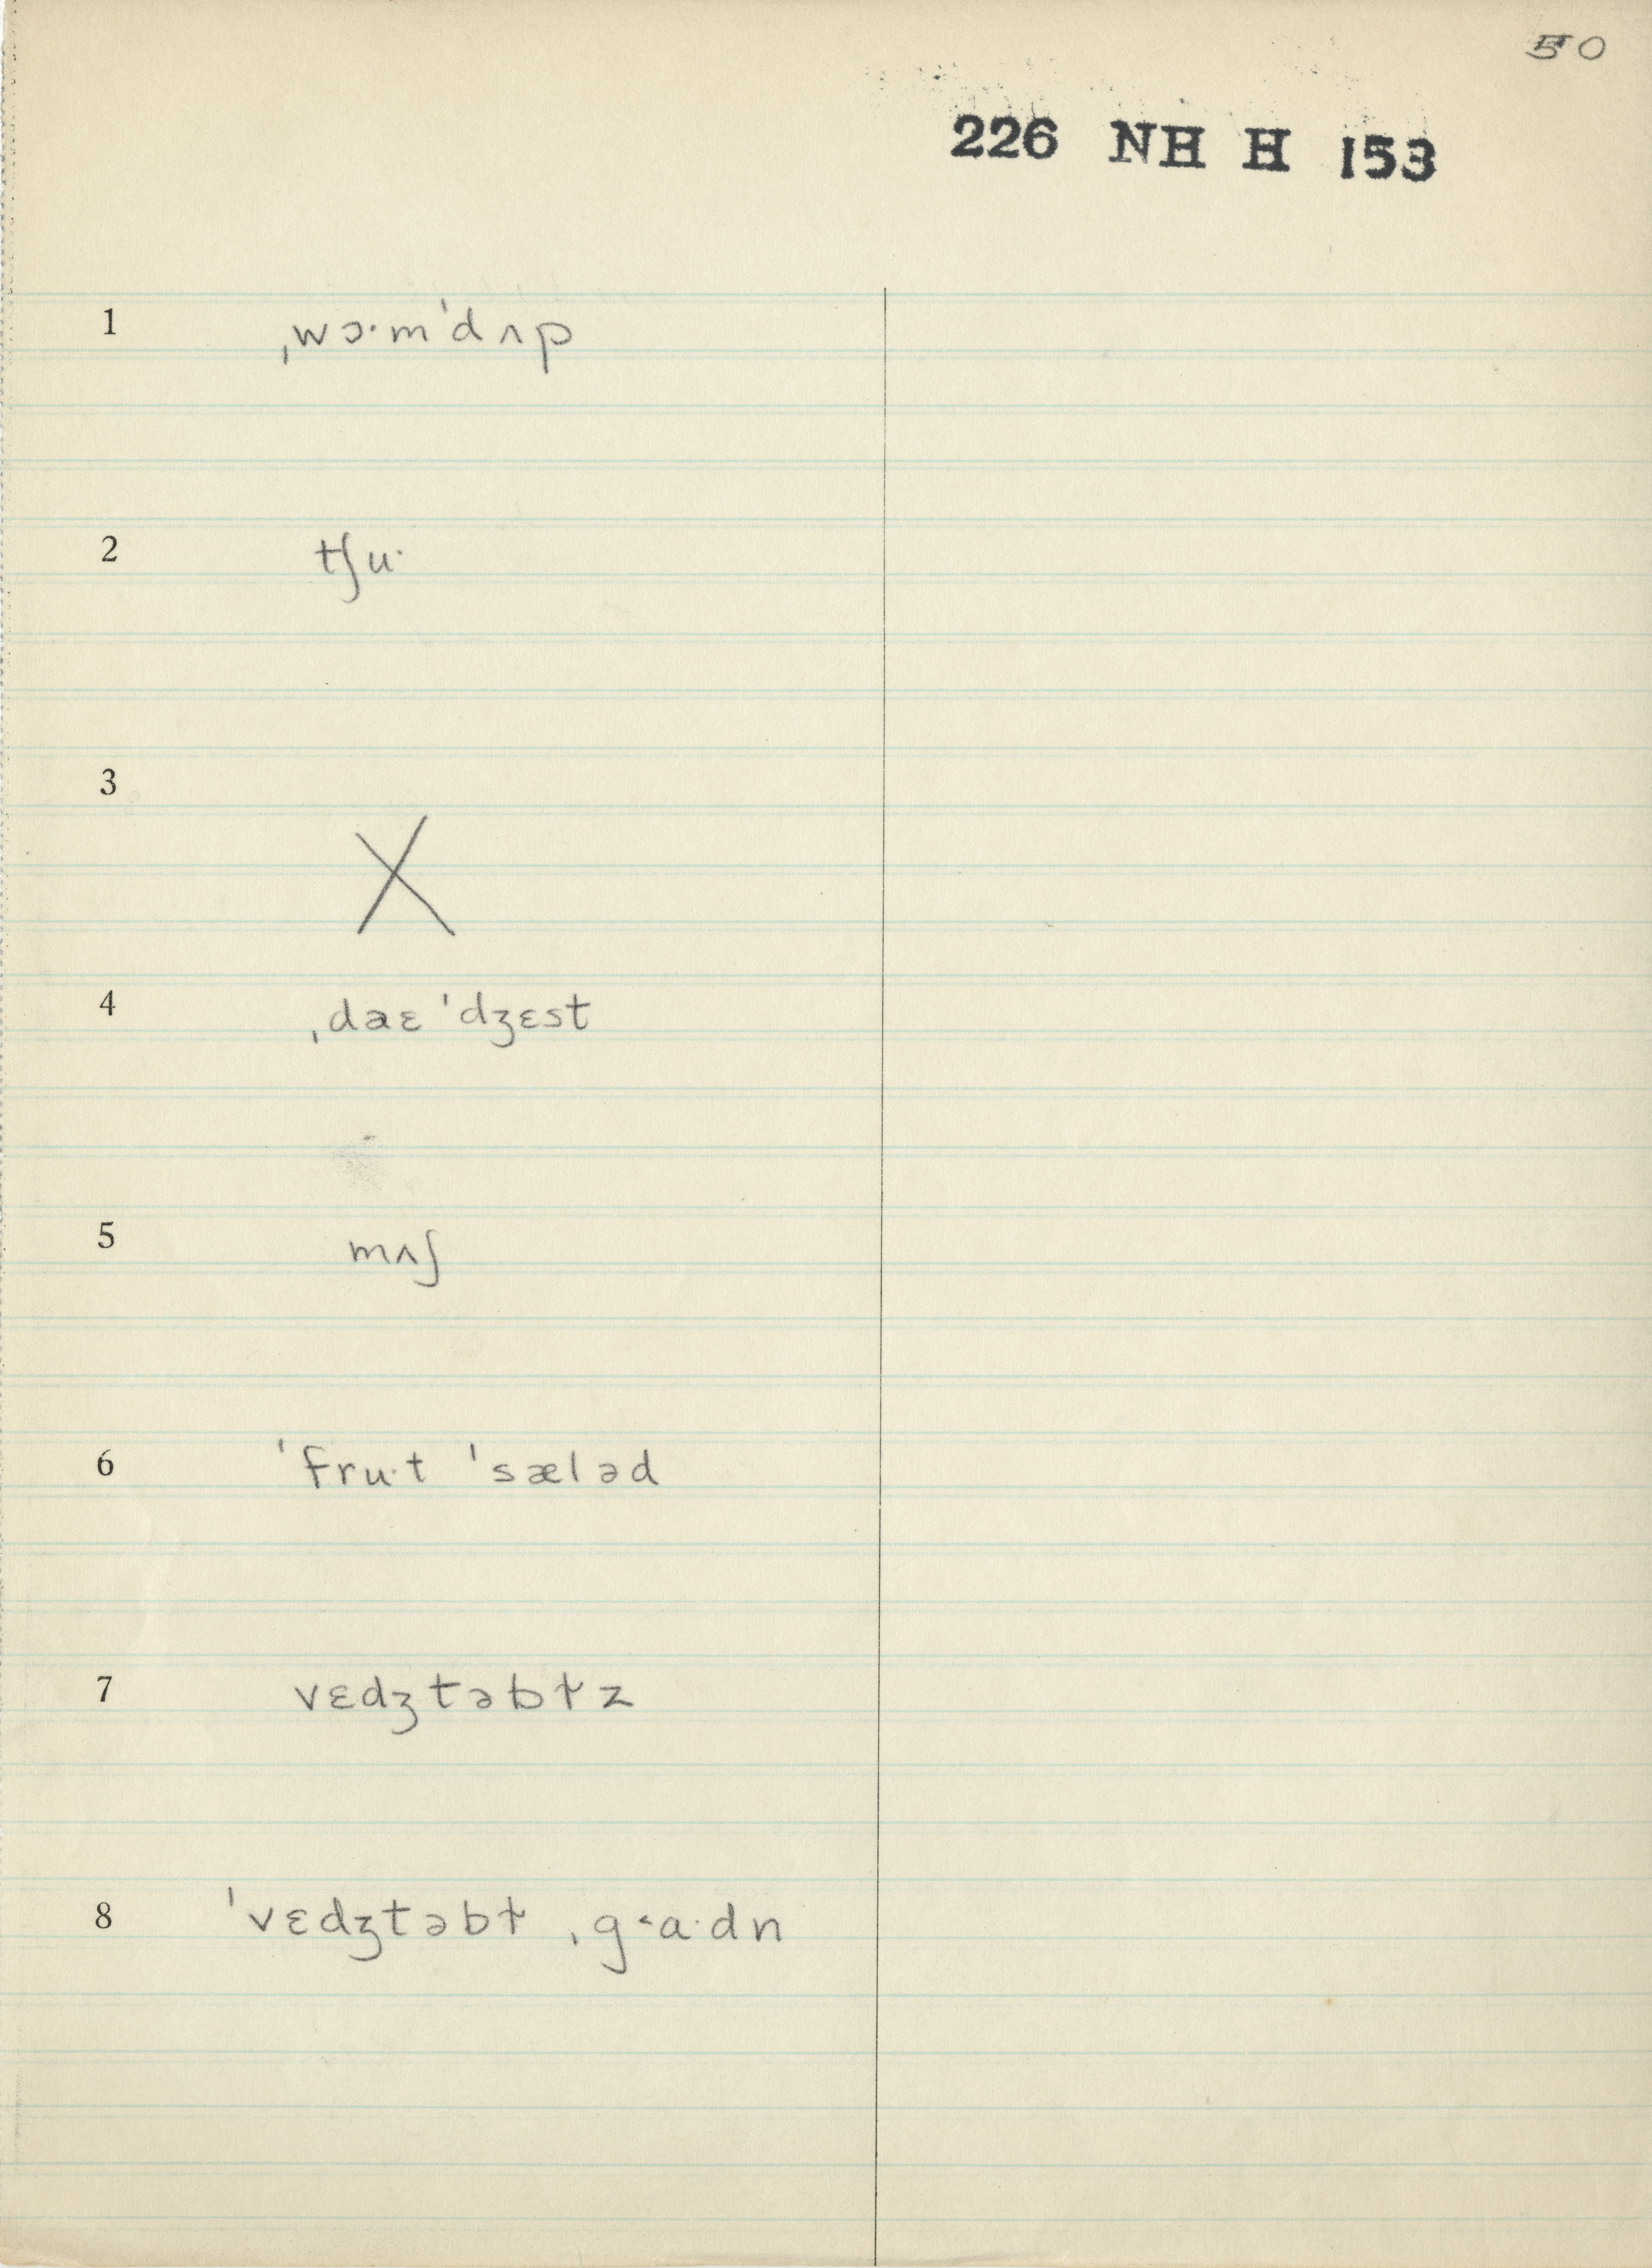 50
226 NH H 153
1 ˌwɔ·mˈdʌp
2 tʃu·
3 X
4 ˌdaɛ ˈdʒɛst
5 mʌʃ
6 ˈfru·t ˈsæləd
7 vɛdʒtəbɫz
8 ˈvɛdʒtəbɫ ˌg˂a·dn